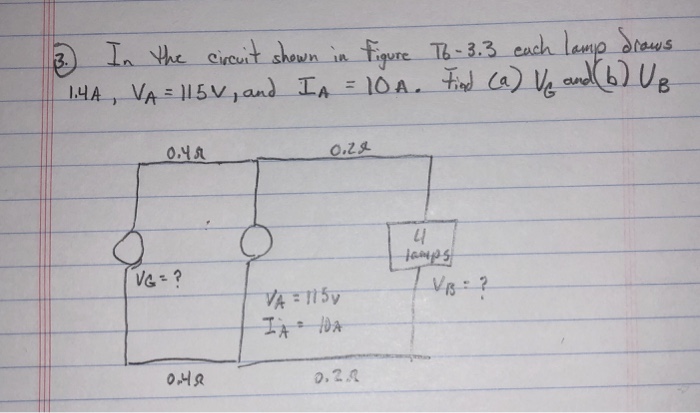 3. In the circuit shown in Figure T6-3.3 each lamp draws
1.4A, VA = 115V, and IA = 10A. Find (a) VG and (b) VB
0.4Ω 0.2Ω
4
lamps
VG = ?
VB = ?
VA = 115v
IA = 10A
0.4Ω 0.2Ω